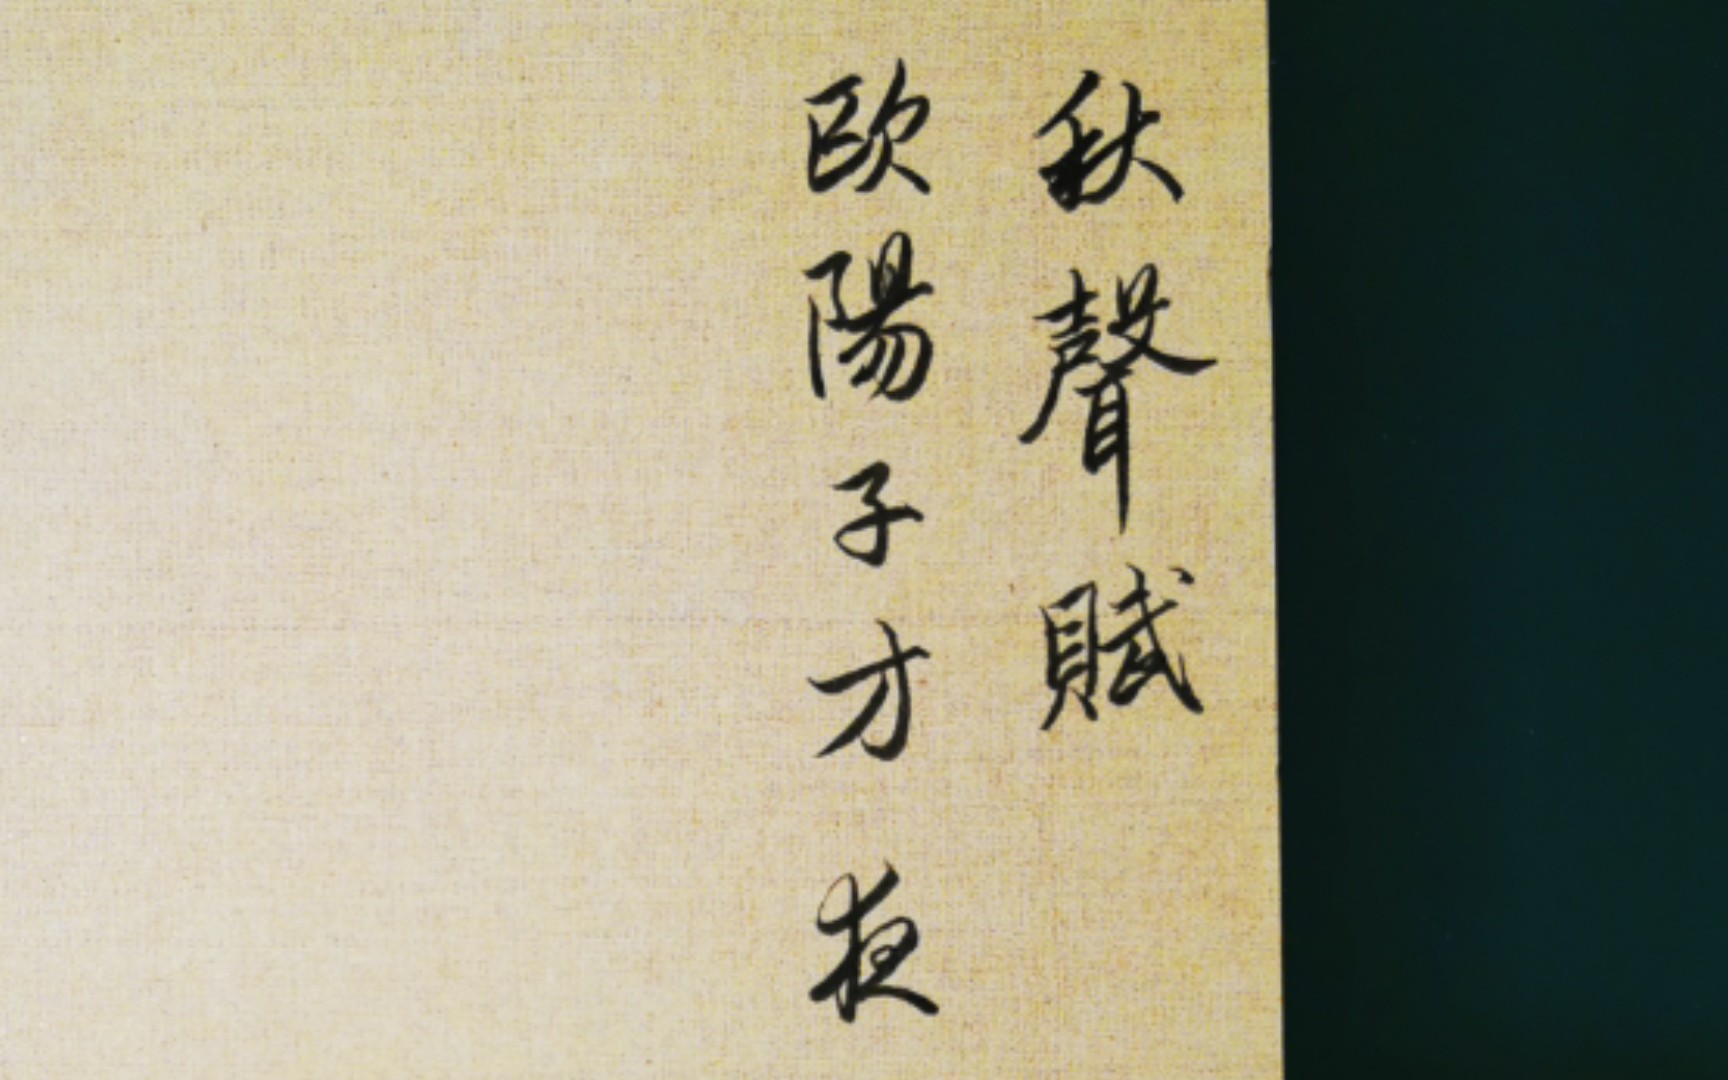 秋聲賦
歐陽子方夜